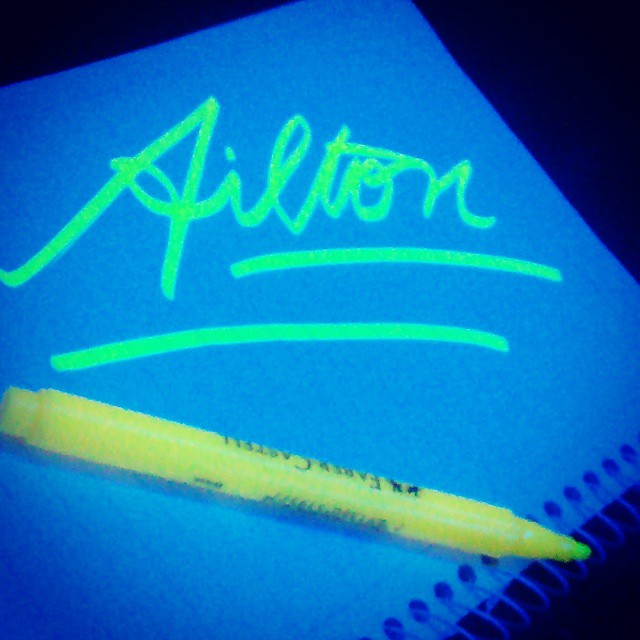 Ailton
FABER-CASTELL